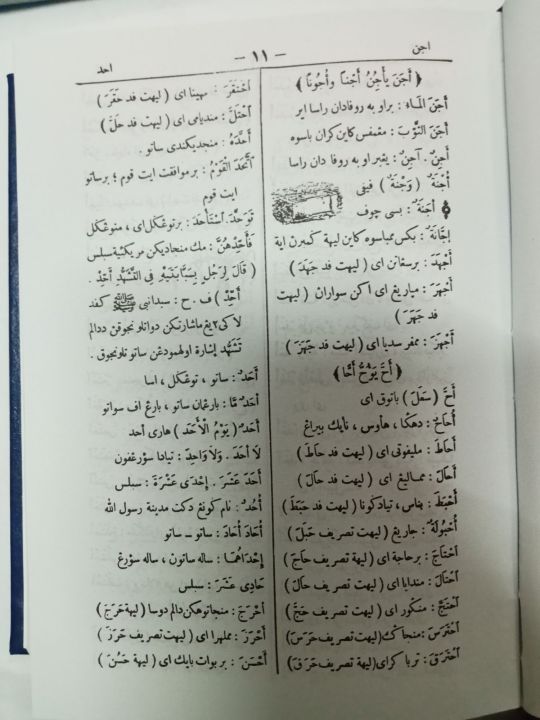 اجن
— ١١ —
احد
﴿ أَجَنَ يَأْجِنُ أَجْنًا وأُجُونًا ﴾
أَجَنَ المَاءُ : براوبه روفادان راسا اير
أَجَنَ الثَّوْبَ : مڠمفس كاين كران باسوه
أَجِنٌ . آجِنٌ : يڠبراوبه روفا دان راسا
أُجْنَةٌ ( وَجْنَةٌ ) فيفي
أَجَنَةٌ : بسي چوف
إِجَّانَةٌ : بكس ممباسوه كاين ليهة كمبرن اية
أَجْهَدَ : برسڠاتن اى ( ليهت فد جَهَدَ )
أَجْهَرَ : مپاريڠ اى اكن سواران ( ليهت
فد جَهَرَ )
أَجْهَزَ : ممفرسديا اى ( ليهت فد جَهَزَ )
﴿ أَحَّ يَؤُحُّ أَحًّا ﴾
أَحَّ ( سَعَلَ ) باتوق اى
أُحَاحٌ : دهكا ، هاوس ، نايك بيراڠ
أَحَاطَ : مليفوتى اى ( ليهت فد حَاطَ )
أَحَالَ : ممـاليڠ اى ( ليهت فد حَالَ )
أَحْبَطَ : بناس ، تيادكونا ( ليهت فد حَبَطَ )
أُحْبُولَةٌ : جاريڠ ( ليهت تصريف حَبَلَ )
اَحْتَاجَ : برحاجة اى ( ليهة تصريف حَاجَ )
اَحْتَالَ : مندايا اى ( ليهت تصريف حَالَ )
اَحْتَجَّ : منسكور اى ( ليهت تصريف حَجَّ )
اَحْتَرَسَ : منجاك ( ليهت تصريف حَرَسَ )
اَحْتَرَقَ : تربا كراى ( ليهة تصريف حَرَقَ )
اَحْتَقَرَ : مهينا اى ( ليهت فد حَقَرَ )
اَحْتَلَّ : مندياملى اى ( ليهت فد حَلَّ )
أَحَّدَهُ : منجديكندى ساتو .
اَتَّحَدَ القَوْمُ : برموافقت ايت قوم ؛ برساتو
ايت قوم
تَوَحَّدَ اَسْتَأْحَدَ : برتوڠكل اى ، منوڠكل
فَأَحَدْهُنَّ : مك منجاديكن مريكئية سبلس
( قَالَ لِرَجُلٍ بِسَبَّابَتَيْهِ فِى التَّشَهُّدِ أَحِّدْ .
أَحِّدْ ) ف . ح : سبدا نبي ﷺ كفد
لاكى٢يڠ ماشارتكن دواتلونجوقن ددالم
تَشَهُّد إشارة اولهمو دڠن ساتو تلونجوق .
أَحَدٌ : ساتو ، توڠكل ، اسا
أحدٌ مَّا : بارڠمان ساتو ، بارڠ اف سواتو
أحدٌ ( يَوْمُ الْأَحَدِ ) هارى أحد
لَا أحَدَ . وَلَا وَاحِدَ : تيادا سؤرڠفون
أَحَدَ عَشَرَ . إحْدَى عَشْرَةَ : سبلس
أُحُدٌ : نام كونڠ دكت مدينة رسول الله
أُحَادَ أُحَادَ : ساتو ـ ساتو
إحْدَاهُمَا : ساله ساتون ، ساله سؤرڠ
حَادِى عَشَرَ : سبلس
أَحْرَجَ : منجاتوهكن دالم دوسا ( ليهة حَرَجَ )
أَحْرَزَ : مملهرا اى ( ليهت تصريف حَرَزَ )
أَحْسَنَ : بربوات بايك اى ( ليهة حَسُنَ )